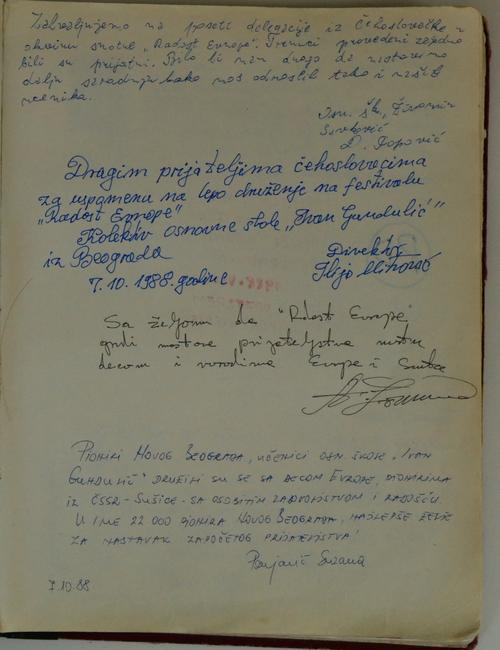 Zahvaljujemo na poseti delegacije iz Čehoslovačke u
okviru smotre „Radost Evrope". Trenuci provedeni zajedno
bili su prijatni. Bilo bi nam drago da nastavimo
dalju saradnju kako nas odraslih tako i naših
učenika.
Živomir
D. Popović
Dragim prijateljima čehoslovacima
za uspomenu na lepo druženje na festivalu
„Radost Evrope"
Kolektiv osnovne škole „Ivan Gundulić"
iz Beograda
Direktor
7.10.1988. godine
Ilija
Sa željom da "Radost Evrope"
gradi mostove prijateljstva među
decom i narodima Evrope i Sveta
PIONIRI NOVOG BEOGRADA, UČENICI OSN. ŠKOLE „IVAN
GUNDULIĆ" DRUŽILI SU SE SA DECOM EVROPE, PIONIRIMA
IZ ČSSR-SUŠICE-SA OSOBITIM ZADOVOLJSTVOM I RADOŠĆU.
U IME 22 000 PIONIRA NOVOG BEOGRADA, NAJLEPŠE ŽELJE
ZA NASTAVAK ZAPOČETOG PRIJATELJSTVA!
Suzana
7.10.88